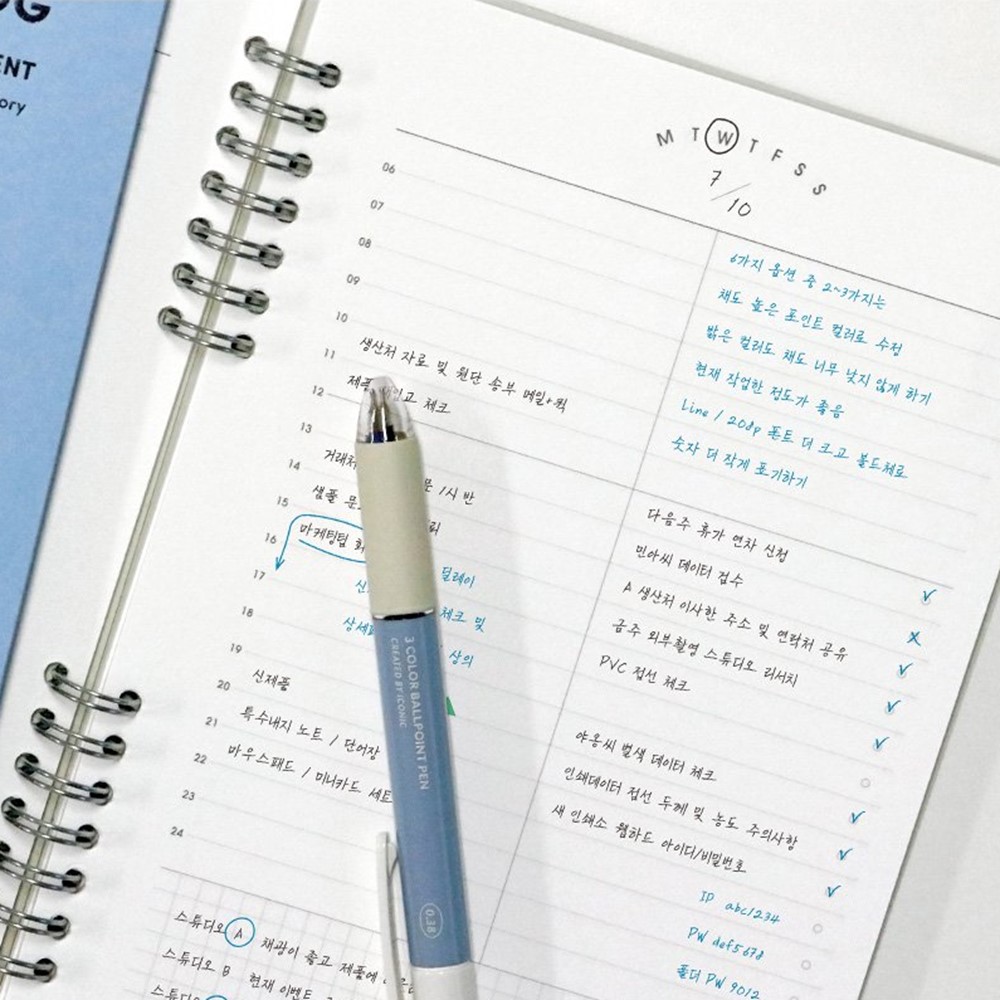 OG
ENT
ory
M T W T F S S
7/10
06
07
08
09
10
11
12
13
14
15
16
17
18
19
20
21
22
23
24
생산처 자료 및 원단 송부 메일+퀵
체크
거래처
/시 반
샘플
마케팅팀
딜레이
체크 및
상의
신제품
특수내지 노트 / 단어장
마우스패드 / 미니카드 세트
6가지 옵션 중 2~3가지는
채도 높은 포인트 컬러로 수정
밝은 컬러도 채도 너무 낮지 않게 하기
현재 작업한 정도가 좋음
Line / 20dp 폰트 더 크고 볼드체로
숫자 더 작게 표기하기
다음주 휴가 연차 신청
민아씨 데이터 검수
A 생산처 이사한 주소 및 연락처 공유
금주 외부촬영 스튜디오 리서치
PVC 접선 체크
야옹씨 별색 데이터 체크
인쇄데이터 접선 두께 및 농도 주의사항
새 인쇄소 웹하드 아이디/비밀번호
ID abc1234
PW def5678
폴더 PW 9012
스튜디오 A 채광이 좋고 제품에
스튜디오 B 현재 이벤트
스튜디오
3 COLOR BALLPOINT PEN
CREATED BY ICONIC
0.38